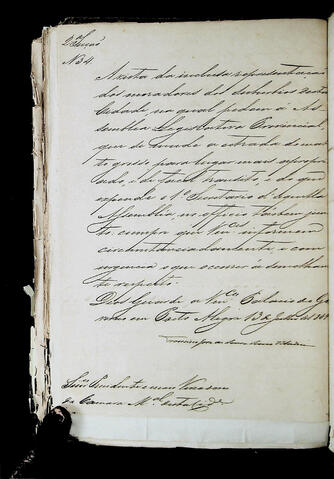 2ª Secção
N 34
A vista da inclusa representação
dos moradores do suburbio desta
Cidade, na qual pedem á As-
sembléa Legislativa Provincial,
que se mude a estrada do mat-
to grosso para lugar mais apropri-
ado, e de facil transito, e do que
responde o 1º Secretario d'aquella
Assembléa, no officio tambem jun-
to, cumpre que Vmces informem
circumstanciadamente, e com
urgencia o que occorrer á semelhan-
te respeito.
Deos Guarde a Vmces Palacio do Go-
verno em Porto Alegre 13 de Julho de
Senres Presidente e mais Vereadores
da Camara Mal desta Cide